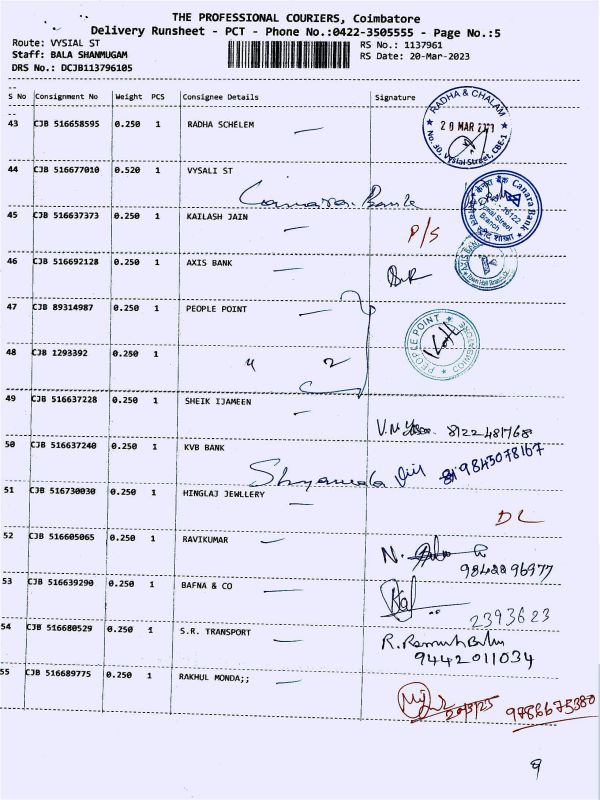 THE PROFESSIONAL COURIERS, Coimbatore
Delivery Runsheet - PCT - Phone No.:0422-3505555 - Page No.:5
Route: VYSIAL ST RS No.: 1137961
Staff: BALA SHANMUGAM RS Date: 20-Mar-2023
DRS No.: DCJB113796105
S No Consignment No Weight PCS Consignee Details Signature
RADHA & CHALAM
43 CJB 516658595 0.250 1 RADHA SCHELEM
20 MAR
No. 30, Vysial Street, CBE-1
44 CJB 516677010 0.520 1 VYSALI ST
Canara Bank
केनरा बैंक Canara Bank
Street
Branch
45 CJB 516637373 0.250 1 KAILASH JAIN
P/S
46 CJB 516692128 0.250 1 AXIS BANK
AXIS BANK
Town Hall Branch
47 CJB 89314987 0.250 1 PEOPLE POINT
PEOPLE POINT
48 CJB 1293392 0.250 1
4 2
49 CJB 516637228 0.250 1 SHEIK IJAMEEN
V.M 8122481768
50 CJB 516637240 0.250 1 KVB BANK
Shyamala 9843078167
51 CJB 516730030 0.250 1 HINGLAJ JEWLLERY
DL
52 CJB 516605065 0.250 1 RAVIKUMAR
N.
53 CJB 516639290 0.250 1 BAFNA & CO
2393623
54 CJB 516680529 0.250 1 S.R. TRANSPORT
R.
9442011034
55 CJB 516689775 0.250 1 RAKHUL MONDA;;
9788675380
9